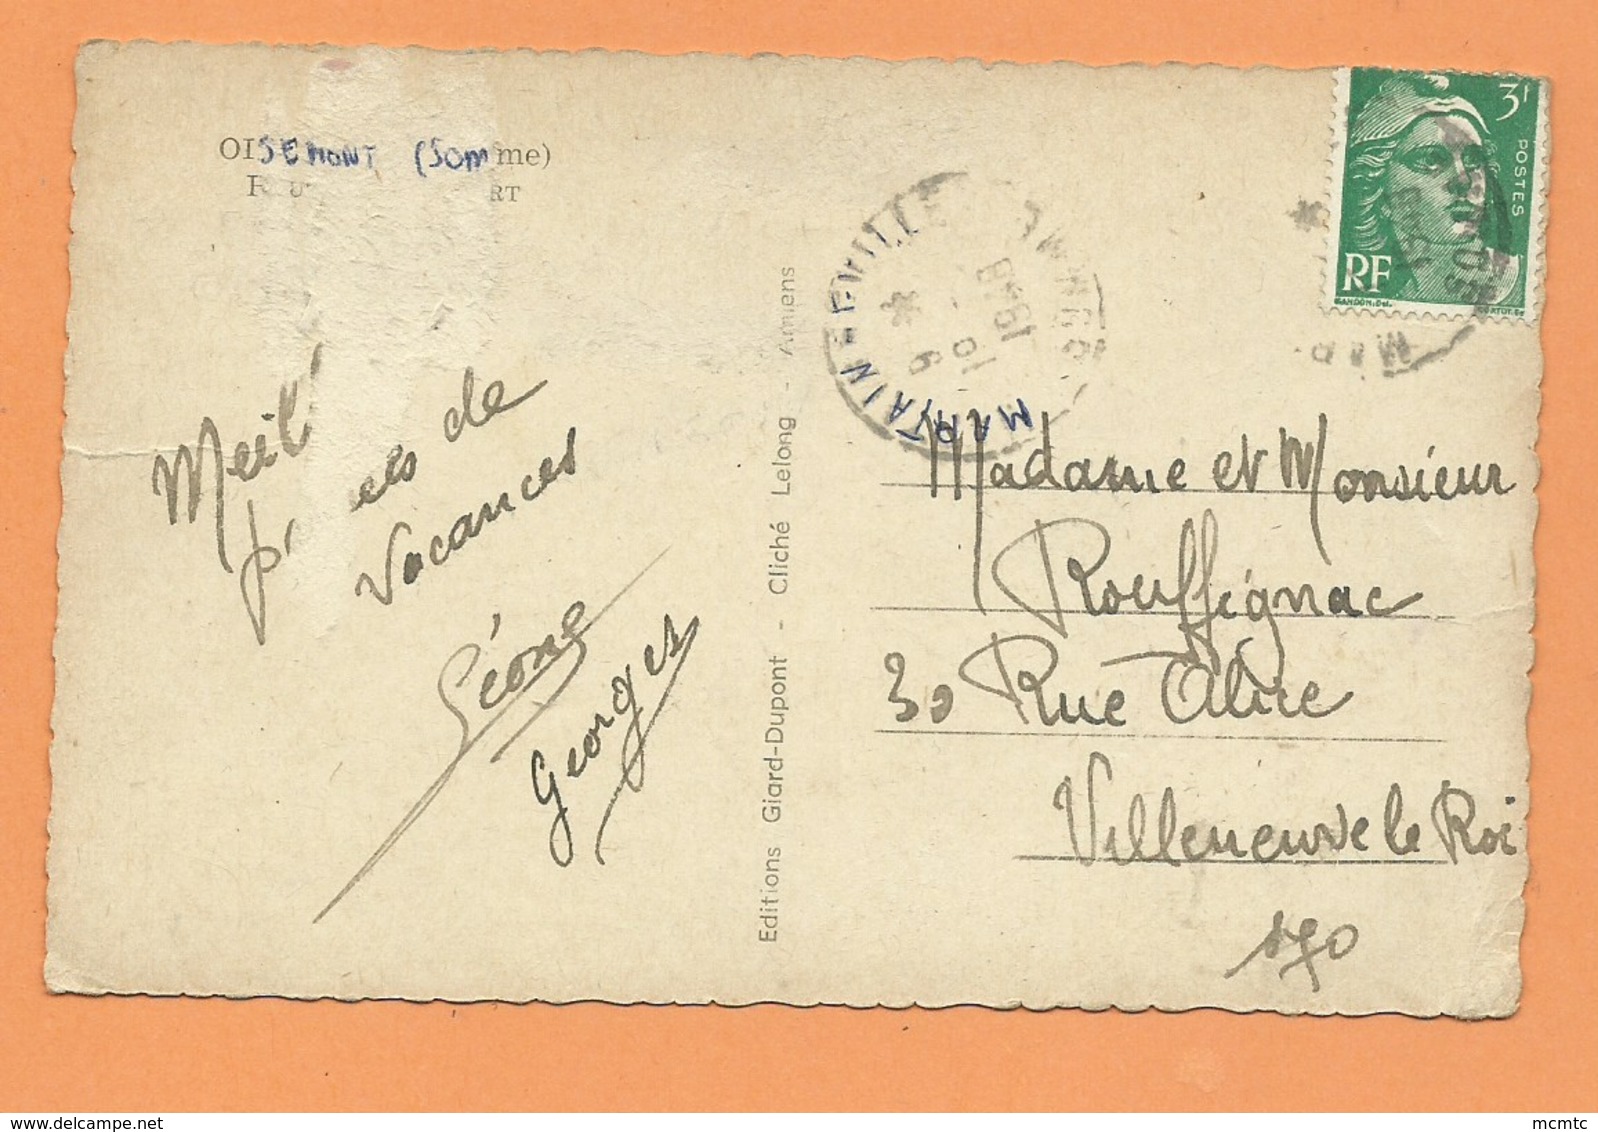 OISEMONT (Somme)
RT
Meil
de
Vacances
Léone
Georges
Editions Giard-Dupont - Cliché Lelong - Amiens
MARTAINNEVILLE
SOMME
6 - 9
1948
3F
POSTES
RF
GANDON.Del.
SOMME
Madame et Monsieur
Rouffignac
30 Rue Aline
Villeneuve le Roi
S&O
mcmtc